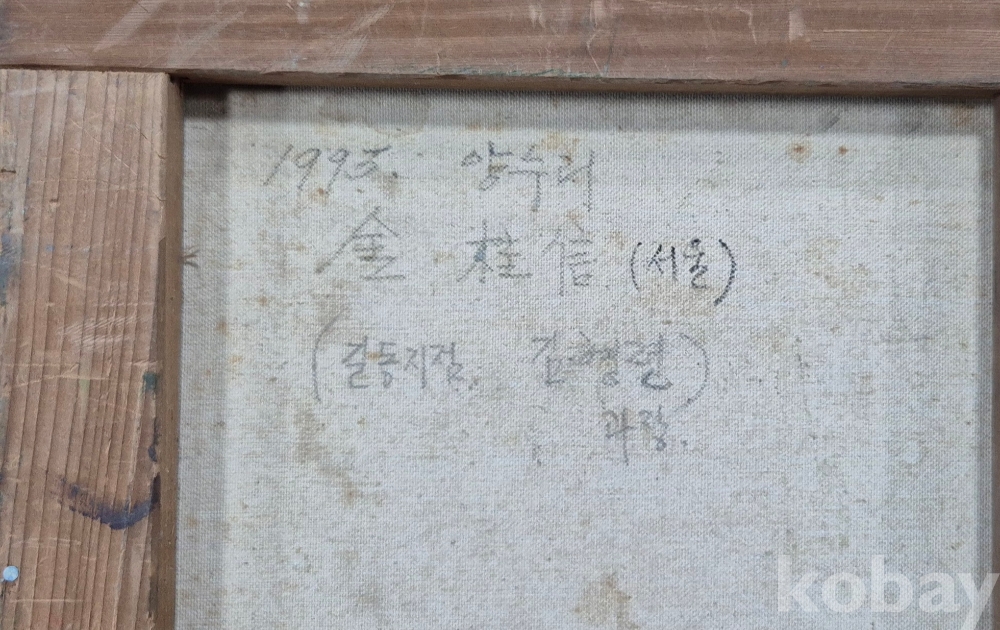 1995. 양수리
金 桂 信 (서울)
(길동지점, 김형렬)
과장.
kobay